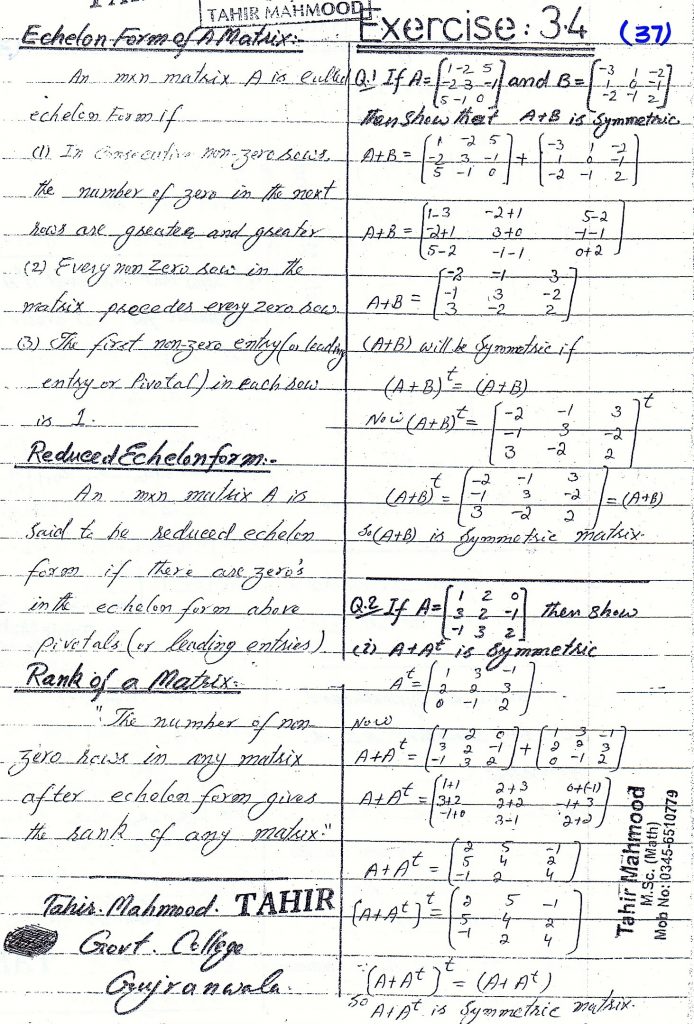 TAHIR MAHMOOD
Exercise: 3.4 (37)
Echelon Form of A Matrix:-
An mxn matrix A is called
echelon Form if
(1) In Consecutive non-zero rows,
the number of zero in the next
rows are greater and greater
(2) Every non Zero row in the
matrix precedes every zero row.
(3) The first non-zero entry (or leading
entry or Pivotal) in each row
is 1.
Reduced Echelon form:-
An mxn matrix A is
said to be reduced echelon
form if there are zero's
in the echelon form above
pivotals (or leading entries)
Rank of a Matrix:
"The number of non-
zero rows in any matrix
after echelon form gives
the rank of any matrix."
Tahir. Mahmood. TAHIR
Govt. College
Gujranwala.
Q.1 If A = [1 -2 5
-2 3 -1
5 -1 0] and B = [-3 1 -2
1 0 -1
-2 -1 2]
then show that A+B is symmetric
A+B = [1 -2 5
-2 3 -1
5 -1 0] + [-3 1 -2
1 0 -1
-2 -1 2]
A+B = [1-3 -2+1 5-2
-2+1 3+0 -1-1
5-2 -1-1 0+2]
A+B = [-2 -1 3
-1 3 -2
3 -2 2]
(A+B) will be Symmetric if
(A+B)^t = (A+B)
Now (A+B)^t = [-2 -1 3
-1 3 -2
3 -2 2]^t
(A+B)^t = [-2 -1 3
-1 3 -2
3 -2 2] = (A+B)
So (A+B) is Symmetric matrix.
Q.2 If A = [1 2 0
3 2 -1
-1 3 2] then show
(i) A+A^t is Symmetric
A^t = [1 3 -1
2 2 3
0 -1 2]
Now
A+A^t = [1 2 0
3 2 -1
-1 3 2] + [1 3 -1
2 2 3
0 -1 2]
A+A^t = [1+1 2+3 0+(-1)
3+2 2+2 -1+3
-1+0 3-1 2+2]
A+A^t = [2 5 -1
5 4 2
-1 2 4]
(A+A^t)^t = [2 5 -1
5 4 2
-1 2 4]
∵ (A+A^t)^t = (A+A^t)
So A+A^t is Symmetric matrix.
Tahir Mahmood
M.Sc. (Math)
Mob No: 0345-6510779